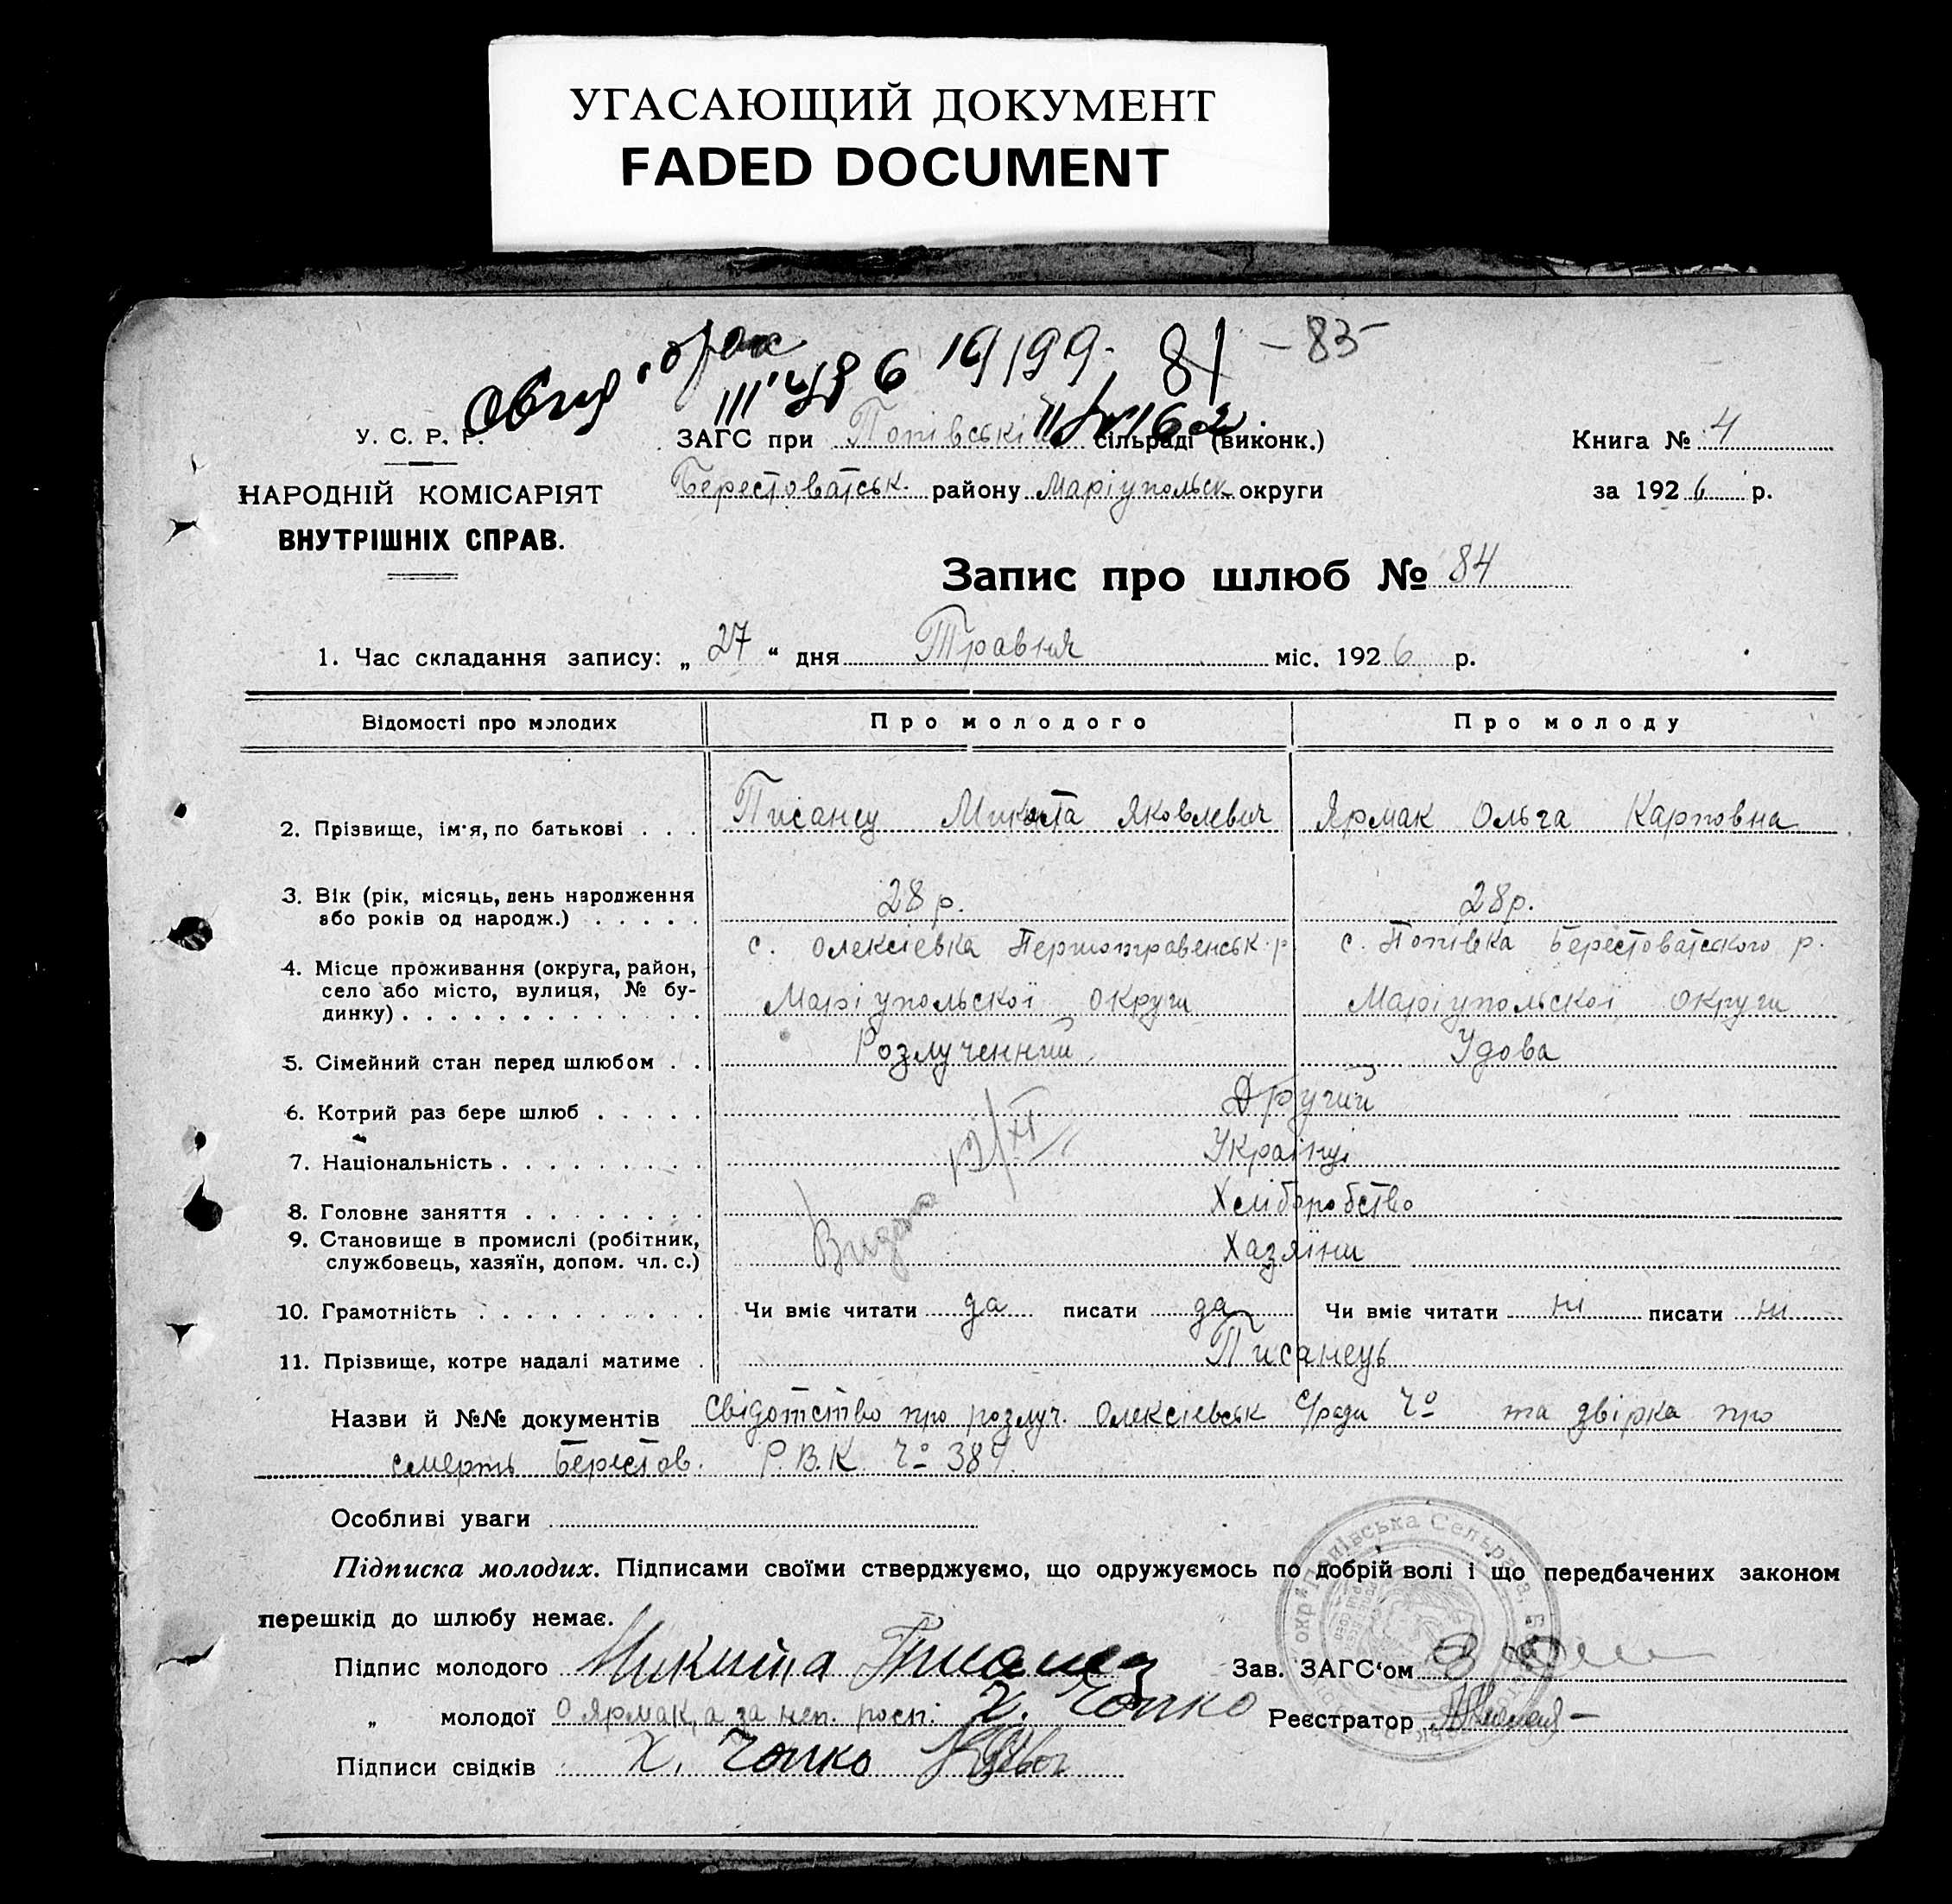 УГАСАЮЩИЙ ДОКУМЕНТ
FADED DOCUMENT
6 19/199. 81 - 83
У. С. Р. Р.
НАРОДНІЙ КОМІСАРІЯТ
ВНУТРІШНІХ СПРАВ.
ЗАГС при Попівській сільраді (виконк.)
Берестоватськ. району Маріупольськ округи
Книга № 4
за 1926 р.
Запис про шлюб № 84
1. Час складання запису: „ 27 “ дня Травня міс. 1926 р.
Відомості про молодих Про молодого Про молоду
2. Прізвище, ім'я, по батькові . . . Писанец Микита Яковлевич Ярмак Ольга Карповна
3. Вік (рік, місяць, день народження
або років од народж.) . . . . . 28 р. 28 р.
с. Олексіевка Першотравенськ. р. с. Попівка Берестоватського р.
4. Місце проживання (округа, район,
село або місто, вулиця, № бу-
динку) . . . . . . . . . . . . . Маріупольскої Округи Маріупольскої Округи
5. Сімейний стан перед шлюбом . . Розлученний Удова
6. Котрий раз бере шлюб . . . . . Другий
7. Національність . . . . . . . . . Українці
8. Головне заняття . . . . . . . . Хліборобство
9. Становище в промислі (робітник,
службовець, хазяїн, допом. чл. с.) Хазяїни
Видано 12/XI
10. Грамотність . . . . . . . . . . Чи вміє читати да писати да Чи вміє читати ні писати ні
11. Прізвище, котре надалі матиме . Писанець
Назви й №№ документів Свідотство про розлуч. Олексіевськ с/ради Чо та двірка про
смерть Берестов. Р.В.К Чо 384.
Особливі уваги
Підписка молодих. Підписами своїми стверджуємо, що одружуємось по добрій волі і що передбачених законом
перешкід до шлюбу немає.
Підпис молодого Микита Писанец Зав. ЗАГС'ом
„ молодої О Ярмак, а за неп. росп: Х. Чопко Реєстратор
Підписи свідків Х. Чопко
Попівська Сельрада